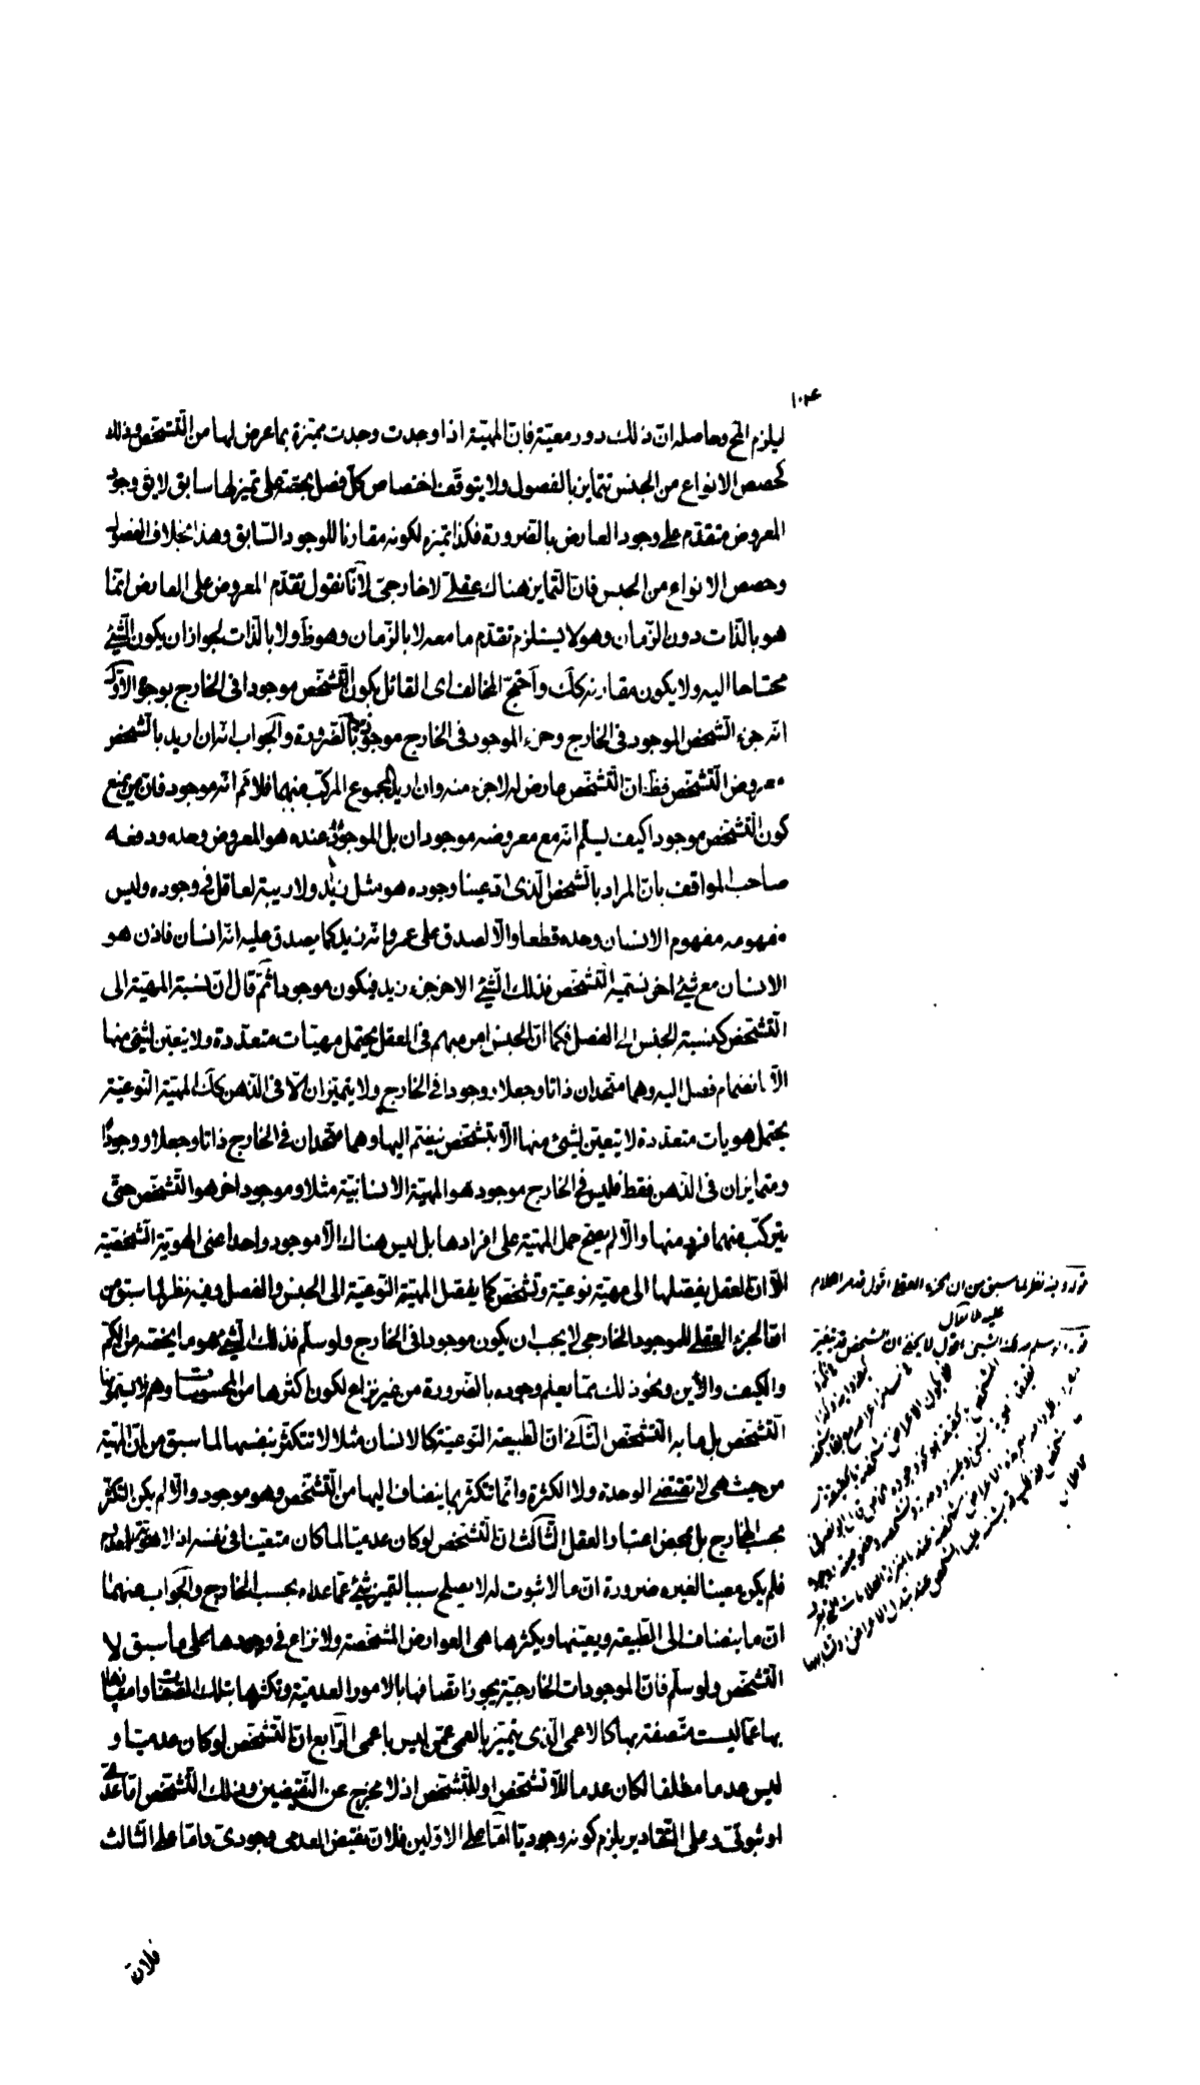 ١٠٤
ليلزم المح وحاصله ان ذلك دور معيّة فان المهيّة اذا وجدت وجدت مميّزة بما عرض لها من التشخّص وذلك
كحصص الانواع من الجنس تتمايز بالفصول ولا يتوقّف اختصاص كل فصل بحصّة على تميّز لها سابق لا يق وجود
المعروض متقدّم على وجود العارض بالضرورة فكذا تميّزه لكونه مقارنا للوجود السّابق وهذا بخلاف الفصول
وحصص الانواع من الجنس فان التمايز هناك عقلىّ لا خارجىّ لانّا نقول تقدّم المعروض على العارض انّما
هو بالذّات دون الزّمان وهو لا يستلزم تقدّم ما معه لا بالزّمان وهو ظ ولا بالذّات لجواز ان يكون الشّيئ
محتاجا اليه ولا يكون مقارنه كك واحتجّ المخالف اى القائل بكون التّشخّص موجودا فى الخارج بوجوه الاوّل
انّه جزء الشّخص الموجود فى الخارج وجزء الموجود فى الخارج موجود بالضّرورة والجواب انّه ان اريد بالشّخص
معروض التّشخّص فظ انّ التّشخّص عارض له لا جزء منه وان اريد المجموع المركّب منهما فلا نم انّه موجود فان من يمنع
كون التّشخّص موجودا كيف يسلّم انّه مع معروضه موجودان بل الموجود عنده هو المعروض وحده ودفعه
صاحب المواقف بان المراد بالشّخص الّذى ادّعينا وجوده هو مثل زيد ولا ريبة لعاقل فى وجوده وليس
مفهومه مفهوم الانسان وحده قطعا والّا لصدق على عمرو انّه زيد كما يصدق عليه انّه انسان فاذن هو
الانسان مع شيئ اخر نسمّيه التّشخّص فذلك الشّيئ الاخر جزء زيد فيكون موجودا ثمّ قال انّ نسبة المهيّة الى
التّشخّص كنسبة الجنس الى الفصل فكما انّ الجنس امر مبهم فى العقل يحتمل مهيّات متعدّدة ولا يتعيّن لشيئ منها
الّا بانضمام فصل اليه وهما متّحدان ذاتا وجعلا ووجودا فى الخارج ولا يتميّزان الّا فى الذّهن كك المهيّة النّوعيّة
يحتمل هويات متعدّدة لا تتعيّن لشيئ منها الّا بتشخّص ينضم اليها وهما متّحدان فى الخارج ذاتا وجعلا ووجودا
ومتمايزان فى الذّهن فقط فليس فى الخارج موجود هو المهيّة الانسانيّة مثلا وموجود اخر هو التّشخّص حتّى
يتركّب منهما فرد منها والّا لم يصحّ حمل المهيّة على افرادها بل ليس هناك الّا موجود واحد اعنى الهويّة الشّخصيّة
الّا ان العقل يفصّلها الى مهيّة نوعيّة وتشخّص كما يفصل المهيّة النّوعيّة الى الجنس والفصل وفيه نظر لما سبق من
ان الجزء العقلى للموجود الخارجى لا يجب ان يكون موجودا فى الخارج ولو سلّم فذلك الشّيئ هو ما يخصّه من الكمّ
والكيف والأين ونحو ذلك ممّا يعلم وجوده بالضّرورة من غير نزاع لكون اكثرها من المحسوسات وهم لا يسمّونها
التّشخّص بل ما به التّشخّص الثّانى انّ الطّبيعة النّوعيّة كالانسان مثلا لا تتكثّر بنفسها لما سبق من ان المهيّة
من حيث هى لا تقتضى الوحدة ولا الكثرة وانّما تتكثر بما ينضاف اليها من التّشخّص وهو موجود والّا لم يكن التكثّر
بحسب الخارج بل بمحض اعتبار العقل الثّالث انّ التّشخّص لو كان عدميّا لما كان متعيّنا فى نفسه اذ لا هويّة للمعدوم
فلم يكن معيّنا لغيره ضرورة ان ما لا ثبوت له لا يصلح سببا لتميّز شيئ عمّا عداه بحسب الخارج والجواب عنهما
ان ما ينضاف الى الطّبيعة ويعيّنها ويكثرها هى العوارض المشخّصة ولا نزاع فى وجودها على ما سبق لا
التّشخّص ولو سلّم فان الموجودات الخارجيّة يجوز اتّصافها بالامور العدميّة وتكثّرها بتلك الصّفات وامتيازها
بها عمّا ليست متّصفة بها كالاعمى الّذى يتميّز بالعمى عمّن ليس باعمى الرّابع انّ التّشخّص لو كان عدميّا و
ليس عدما مطلقا لكان عدما للّا تشخّص او للتّشخّص اذ لا مخرج عن النّقيضين وذلك التّشخّص امّا عدمى
او ثبوتىّ وعلى التّقادير يلزم كونه وجوديّا امّا على الاوّلين فلان نقيض العدمى وجودىّ وامّا على الثّالث
فلان
قوله وفيه نظر لما سبق من ان الجزء العقلى اقول قد مر الكلام
عليه